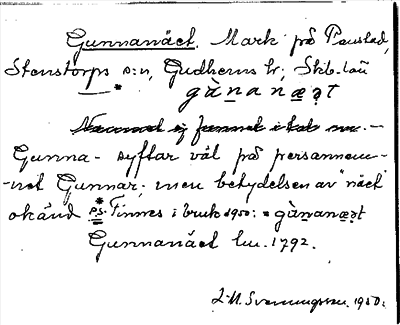 Gunnanäet. Mark på Painstad,
Stenstorps s:n, Gudhems hr; Skb. län
gùnanæ̣ət
Namnet ej funnet i kab
Gunna- syftar väl på personnam-
-net Gunnar; men betydelsen av "näet"
okänd ps. Finnes i bruk 1950: gùnanæ̣ət
Gunnanäet lm. 1792.
J. M. Svenningsson. 1950.